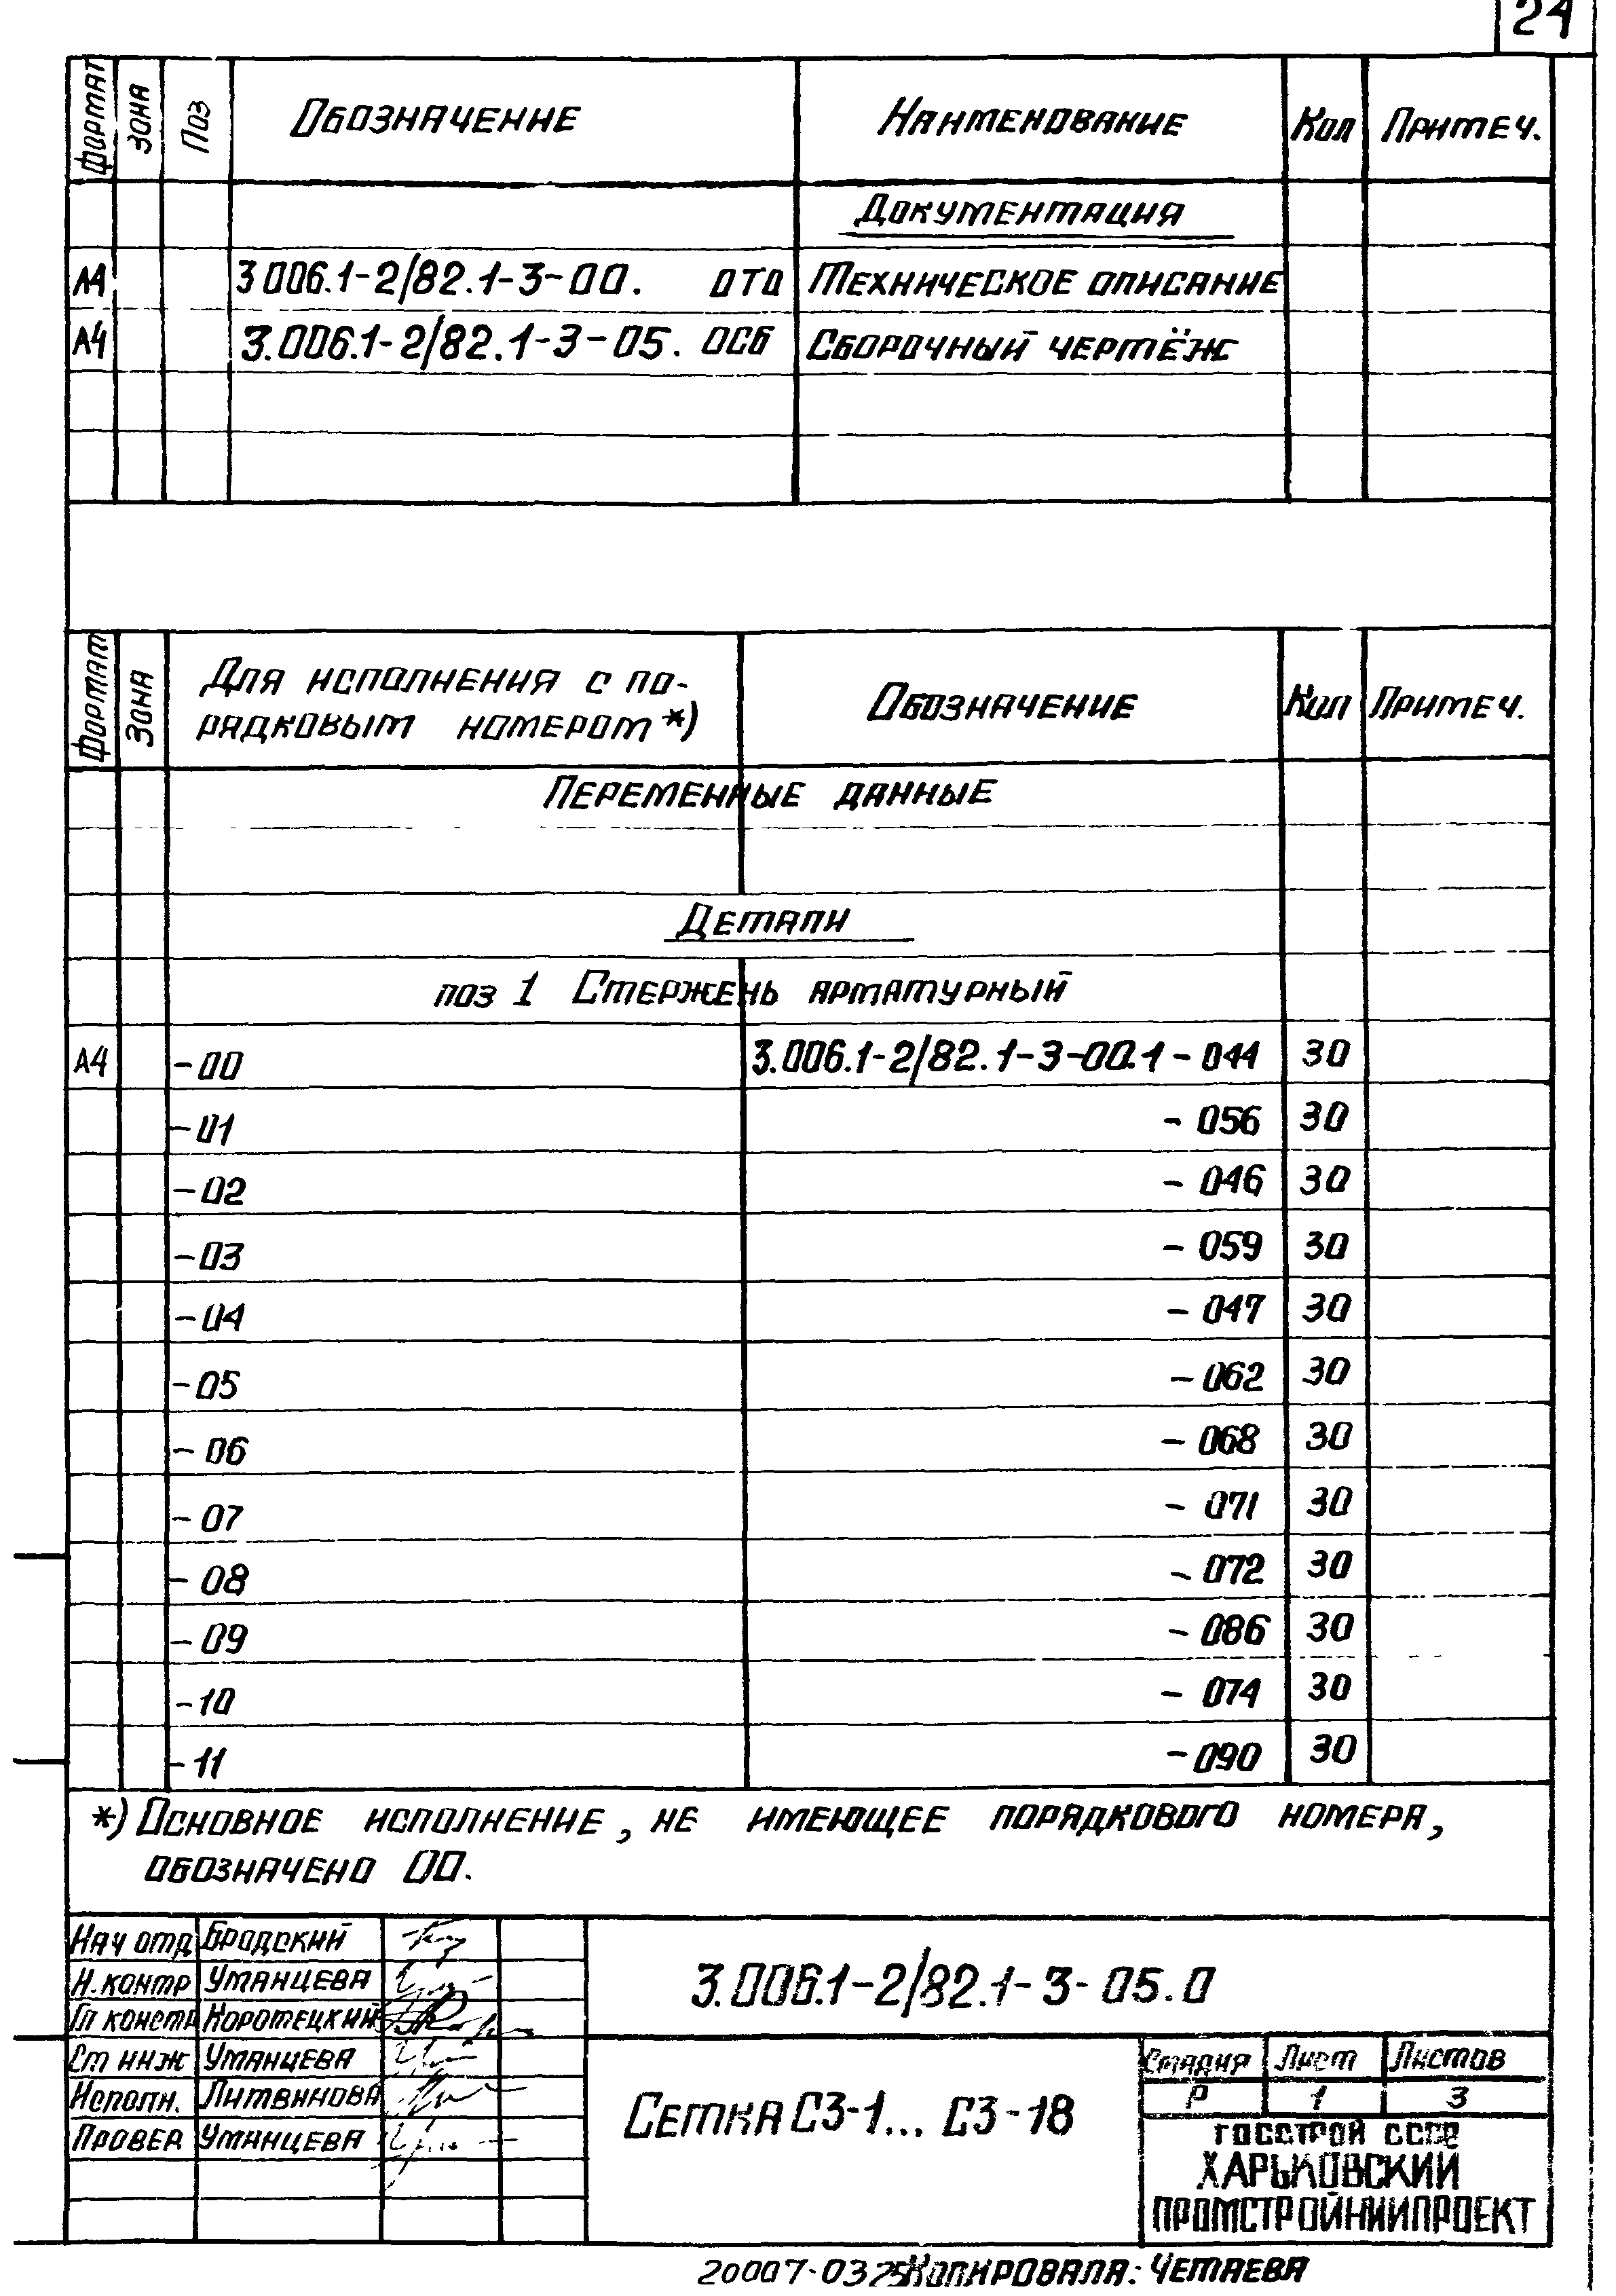 24
Формат Зона Поз Обозначение Наименование Кол Примеч.
Документация
А4 3.006.1-2/82.1-3-00. 0ТО Техническое описание
А4 3.006.1-2/82.1-3-05. 0СБ Сборочный чертёж
Формат Зона Для исполнения с по- Обозначение Кол Примеч.
рядковым номером *)
Переменные данные
Детали
поз 1 Стержень арматурный
А4 -00 3.006.1-2/82.1-3-00.1-044 30
-01 -056 30
-02 -046 30
-03 -059 30
-04 -047 30
-05 -062 30
-06 -068 30
-07 -071 30
-08 -072 30
-09 -086 30
-10 -074 30
-11 -090 30
*) Основное исполнение, не имеющее порядкового номера,
обозначено 00.
Нач отд Бродский
Н.контр Уманцева
Гл констр Коротецкий
Ст инж Уманцева
Исполн. Литвинова
Провер Уманцева
3.006.1-2/82.1-3-05.0
Сетка С3-1... С3-18
Стадия Лист Листов
Р 1 3
ГОССТРОЙ СССР
ХАРЬКОВСКИЙ
ПРОМСТРОЙНИИПРОЕКТ
20007-03 25 Копировала: Четаева